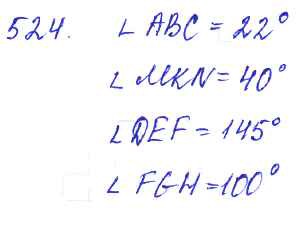 524. ∠ ABC = 22°
∠ MKN = 40°
∠ DEF = 145°
∠ FGH = 100°